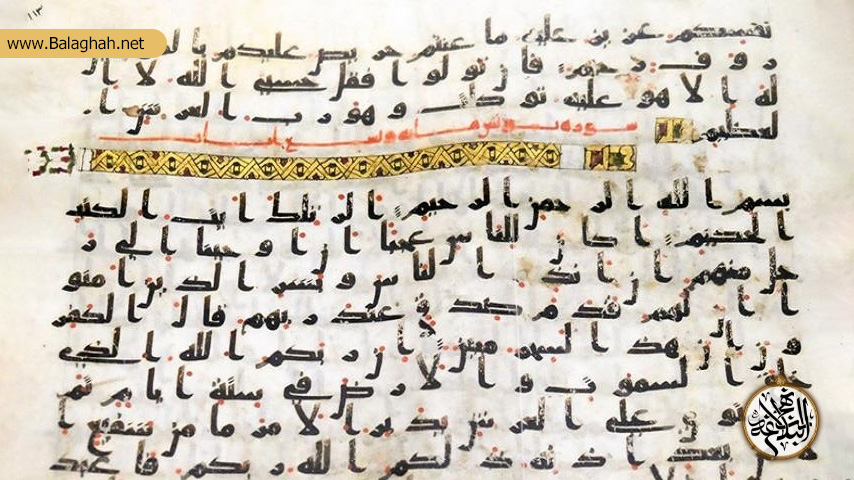 www.Balaghah.net
نفسكم عزيز عليه ما عنتم حريص عليكم بالمو
روف رحيم فان تولوا فقل حسبي الله لا ا
له الا هو عليه توكلت وهو رب العرش ا
لعظيم
سورة يونس مائة وتسع ايات
بسم الله الرحمن الرحيم الر تلك ايت الكتب
الحكيم اكان للناس عجبا ان اوحينا الى ر
جل منهم ان انذر الناس وبشر الذين امنو
ا ان لهم قدم صدق عند ربهم قال الكفر
ون ان هذا لسحر مبين ان ربكم الله الذي
خلق السموت والارض في ستة ايام ثم
استوى على العرش يدبر الامر ما من شفيع ا
لا من بعد اذنه ذلكم الله ربكم فاعبد
نهج البلاغة